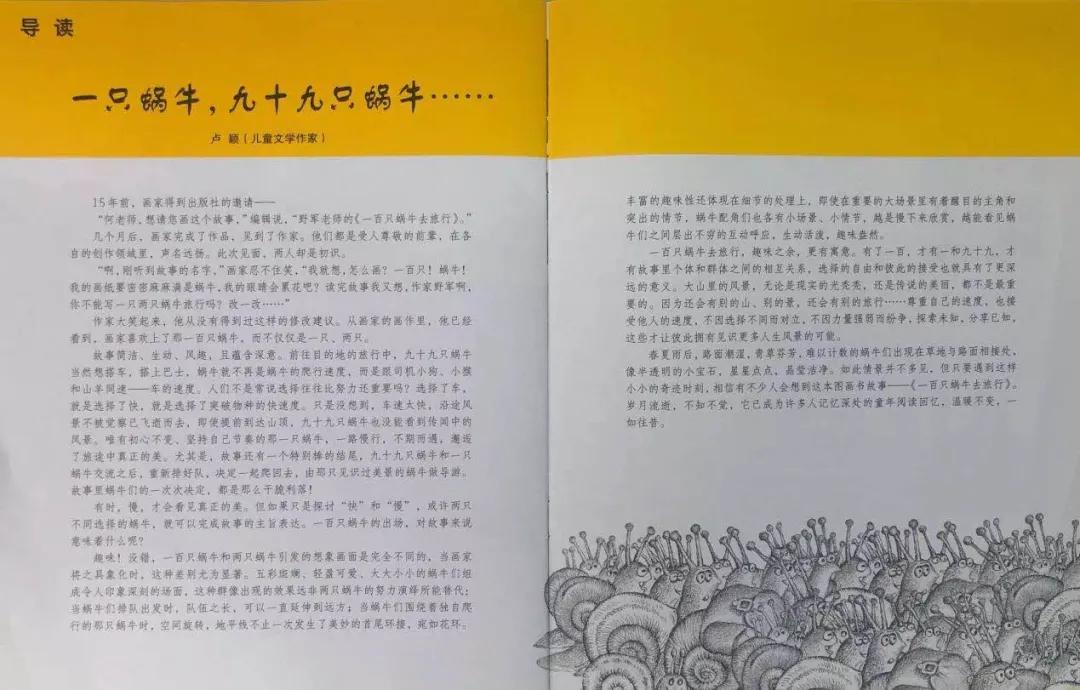 导 读
一只蜗牛，九十九只蜗牛……
卢 颖（儿童文学作家）
15年前，画家得到出版社的邀请——
“何老师，想请您画这个故事，”编辑说，“野军老师的《一百只蜗牛去旅行》。”
几个月后，画家完成了作品，见到了作家。他们都是受人尊敬的前辈，在各
自的创作领域里，声名远扬。此次见面，两人却是初识。
“啊，刚听到故事的名字，”画家忍不住笑，“我就想，怎么画？一百只！蜗牛！
我的画纸要密密麻麻满是蜗牛，我的眼睛会累花吧？读完故事我又想，作家野军啊，
你不能写一只两只蜗牛旅行吗？改一改……”
作家大笑起来，他从没有得到过这样的修改建议。从画家的画作里，他已经
看到，画家喜欢上了那一百只蜗牛，而不仅仅是一只、两只。
故事简洁、生动、风趣，且蕴含深意。前往目的地的旅行中，九十九只蜗牛
当然想搭车，搭上巴士，蜗牛就不再是蜗牛的爬行速度，而是跟司机小狗、小猴
和山羊同速——车的速度。人们不是常说选择往往比努力还重要吗？选择了车，
就是选择了快，就是选择了突破物种的快速度。只是没想到，车速太快，沿途风
景不被觉察已飞逝而去，即使提前到达山顶，九十九只蜗牛也没能看到传闻中的
风景。唯有初心不变、坚持自己节奏的那一只蜗牛，一路慢行，不期而遇，邂逅
了旅途中真正的美。尤其是，故事还有一个特别棒的结尾，九十九只蜗牛和一只
蜗牛交流之后，重新排好队，决定一起爬回去，由那只见识过美景的蜗牛做导游。
故事里蜗牛们的一次次决定，都是那么干脆利落！
有时，慢，才会看见真正的美。但如果只是探讨“快”和“慢”，或许两只
不同选择的蜗牛，就可以完成故事的主旨表达。一百只蜗牛的出场，对故事来说
意味着什么呢？
趣味！没错，一百只蜗牛和两只蜗牛引发的想象画面是完全不同的，当画家
将之具象化时，这种差别尤为显著。五彩斑斓、轻盈可爱、大大小小的蜗牛们组
成令人印象深刻的场面，这种群像出现的效果远非两只蜗牛的努力演绎所能替代；
当蜗牛们排队出发时，队伍之长，可以一直延伸到远方；当蜗牛们围绕着独自爬
行的那只蜗牛时，空间旋转，地平线不止一次发生了美妙的首尾环接，宛如花环。
丰富的趣味性还体现在细节的处理上，即使在重要的大场景里有着醒目的主角和
突出的情节，蜗牛配角们也各有小场景、小情节，越是慢下来欣赏，越能看见蜗
牛们之间层出不穷的互动呼应，生动活泼，趣味盎然。
一百只蜗牛去旅行，趣味之余，更有寓意。有了一百，才有一和九十九，才
有故事里个体和群体之间的相互关系，选择的自由和彼此的接受也就具有了更深
远的意义。大山里的风景，无论是现实的光秃秃，还是传说的美丽，都不是最重
要的。因为还会有别的山、别的景，还会有别的旅行……尊重自己的速度，也接
受他人的速度，不因选择不同而对立，不因力量强弱而纷争，探索未知，分享已知，
这些才让彼此拥有见识更多人生风景的可能。
春夏雨后，路面潮湿，青草芬芳，难以计数的蜗牛们出现在草地与路面相接处，
像半透明的小宝石，星星点点，晶莹洁净。如此情景并不多见，但只要遇到这样
小小的奇迹时刻，相信有不少人会想到这本图画书故事——《一百只蜗牛去旅行》。
岁月流逝，不知不觉，它已成为许多人记忆深处的童年阅读回忆，温暖不变，一
如往昔。